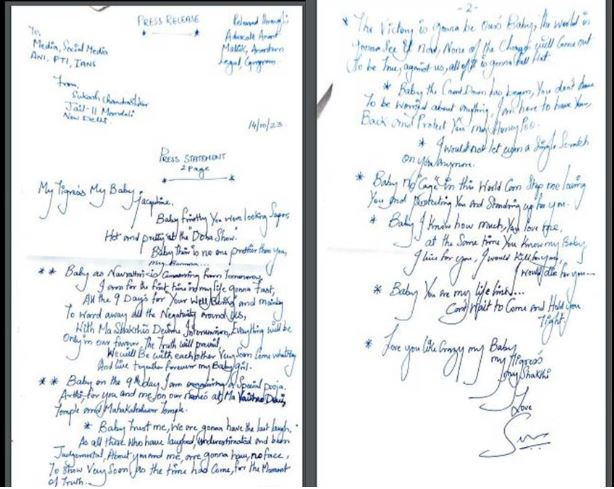 PRESS RELEASE
Released through:
Advocate Anant
Malik, Anantam
Legal, Gurugram
To,
Media, Social Media
ANI, PTI, IANS
From,
Sukash Chandrashekar
Jail-11 Mandoli
New Delhi
14/10/23
PRESS STATEMENT
2 Page
My Tigress My Baby Jacqueline,
Baby firstly You were looking Super,
Hot and pretty at the "Doha Show".
Baby there is no one prettier than you,
my
** Baby as Navratri is from tomorrow,
I am for the first time in my life gonna Fast,
All the 9 Days for Your Well Being and mainly
To Ward away all the Negativity around Us,
With Ma Shakthis Devine Everything will be
Only in our favour, The Truth will prevail,
We will Be with each other Very Soon Come what may
And live together forever my Baby girl.
** Baby on the 9th day, I am a Special pooja.
for You and me on our at Ma Vaishno Devi,
Temple and Mahakaleshwar Temple.
* Baby trust me, We are gonna have the last laugh.
As all those Who have laughed, underestimated and been
Judgemental, About You and me, are gonna have, no face,
To show Very Soon, as the time has Come, for the Moment
of Truth.
- 2 -
* The Victory is gonna be ours Baby, the World is
gonna See it Now, None of the Charges will Come out
To be true, against us, all of it is gonna fall flat
* Baby the Count Down has begun, You don't have
To be Worried about anything, I am here to have Your
Back and Protect You my Honey
* I would not let even a Single Scratch
on You Anymore.
* Baby no "Cage" in this World Can Stop me loving
You and Protecting You And Standing up for you.
* Baby I know how much You love me,
at the Same time You know my Baby
I live for you, I would Kill for you,
I would die for you...
* Baby You are my life
Can't Wait to Come and Hold you
Tight,
* Love you Like Crazy my Baby
my Tigress
my Shakthi
Love